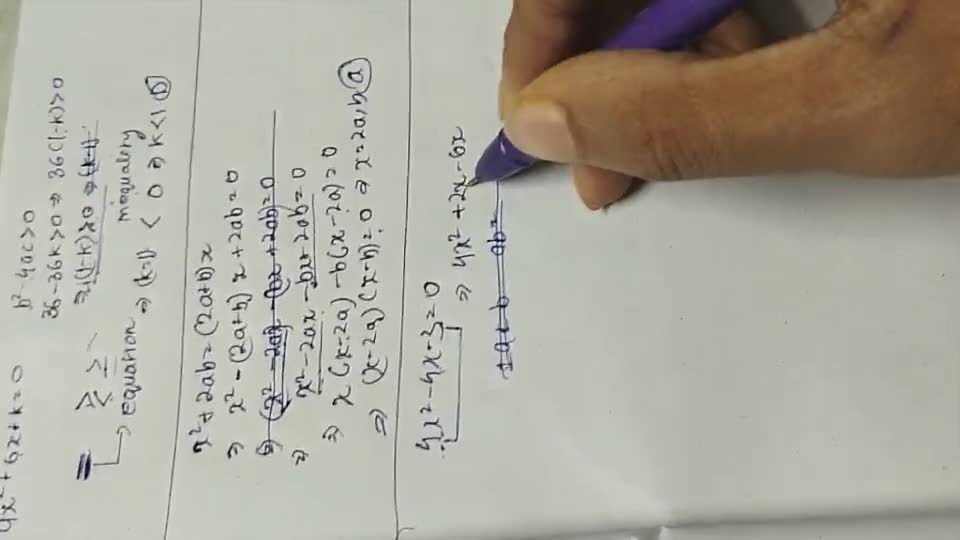 4x² + 6x + k = 0
b² - 4ac > 0
36 - 36k > 0 ⇒ 36(1-k) > 0
= ≥ >
equation inequality
⇒ (k-1) < 0 ⇒ k < 1 (b)
x² + 2ab = (2a+b)x
⇒ x² - (2a+b)x + 2ab = 0
⇒ x² - 2ax - bx + 2ab = 0
⇒ x² - 2ax - bx + 2ab = 0
⇒ x(x-2a) - b(x-2a) = 0
⇒ (x-2a)(x-b) = 0 ⇒ x = 2a, b (a)
4x² - 4x - 3 = 0
⇒ 4x² + 2x - 6x